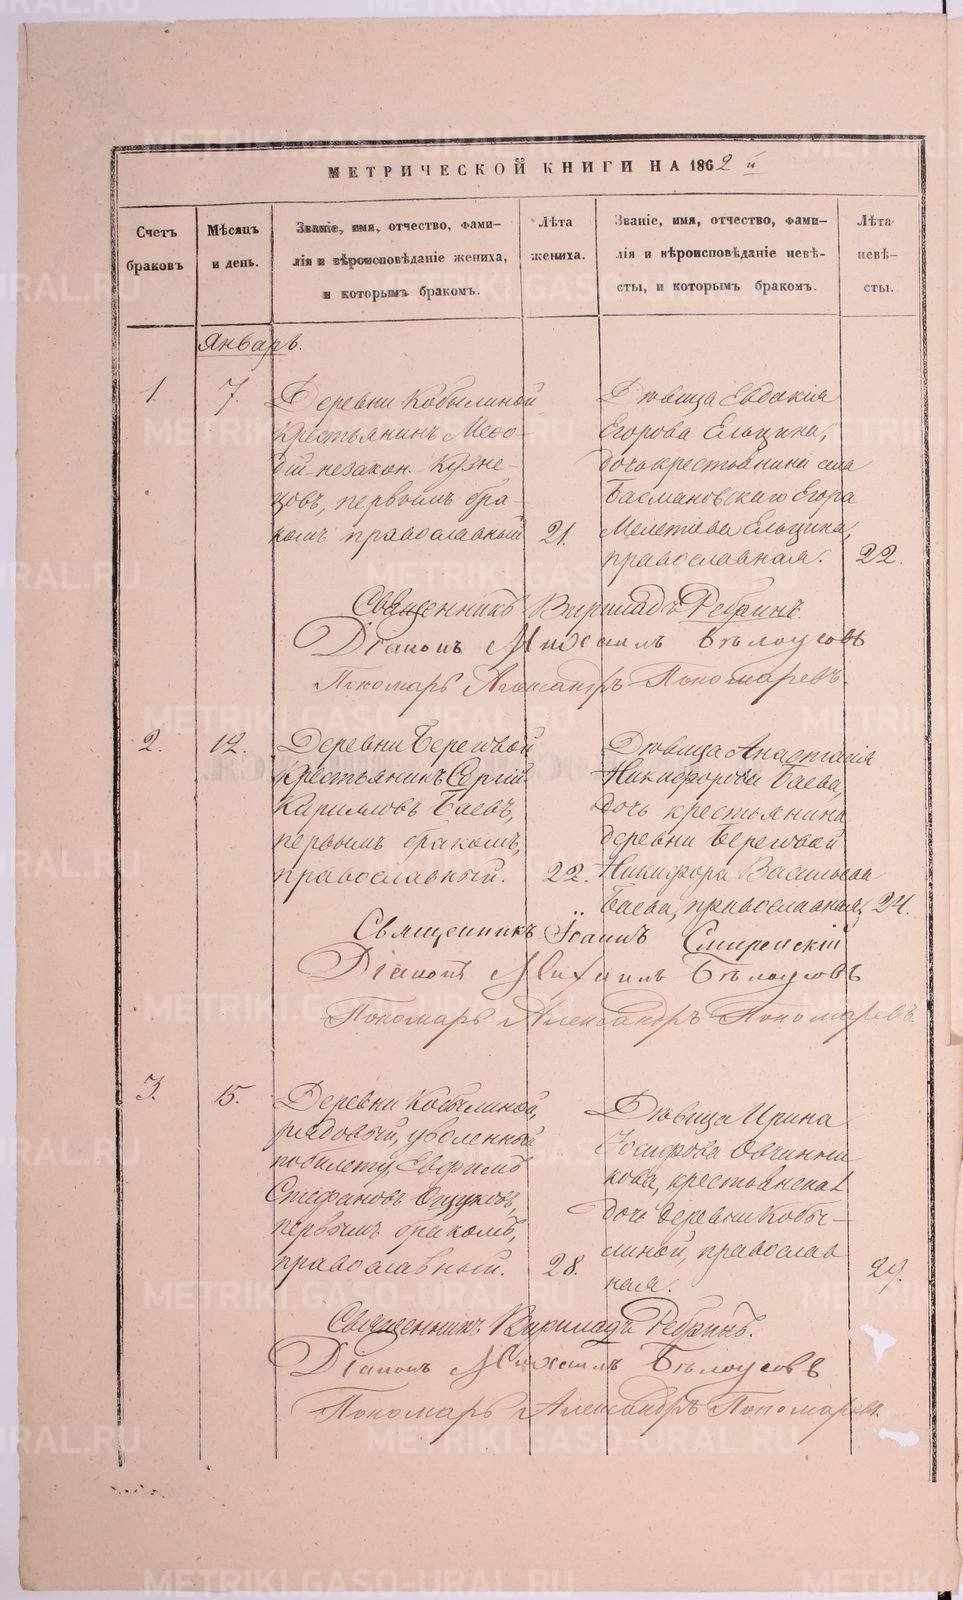 МЕТРИЧЕСКОЙ КНИГИ НА 1862 й
Счетъ браковъ
Мѣсяцъ и день.
Званіе, имя, отчество, фами-
лія и вѣроисповѣданіе жениха,
и которымъ бракомъ.
Лѣта
жениха.
Званіе, имя, отчество, фами-
лія и вѣроисповѣданіе невѣ-
сты, и которымъ бракомъ.
Лѣта
невѣ-
сты.
Январь.
1.
7.
Деревни Кобылиной
крестьянинъ Меѳо-
дій незакон. Кузне-
цовъ, первымъ бра-
комъ православный
21.
Дѣвица Евдокія
Егорова Ельцина,
дочь крестьянина села
Басмановскаго Егора
Мелетова Ельцина,
православная.
22.
Священникъ Ребринъ.
Діаконъ Михаилъ Бѣлоусовъ
Пономарь Александръ Пономаревъ.
2.
12.
Деревни Береговой
крестьянинъ Сергій
Кириловъ Баевъ,
первымъ бракомъ,
православный.
22.
Дѣвица Анастасія
Никифорова Баева,
дочь крестьянина
деревни Береговой
Никифора Васильева
Баева, православная,
24.
Священникъ Іоаннъ
Діаконъ Михаилъ Бѣлоусовъ
Пономарь Александръ Пономаревъ.
3.
15.
Деревни Кобылиной,
рядовый, уволенный
по билету Евфимъ
Стефановъ
первымъ бракомъ,
православный.
28.
Дѣвица Ирина
Іосифова Овчинни
кова, крестьянская
дочь деревни Кобы-
линой, православ
ная.
29.
Священникъ Ребринъ.
Діаконъ Михаилъ Бѣлоусовъ
Пономарь Александръ Пономаревъ.
METRIKI.GASO-URAL.RU